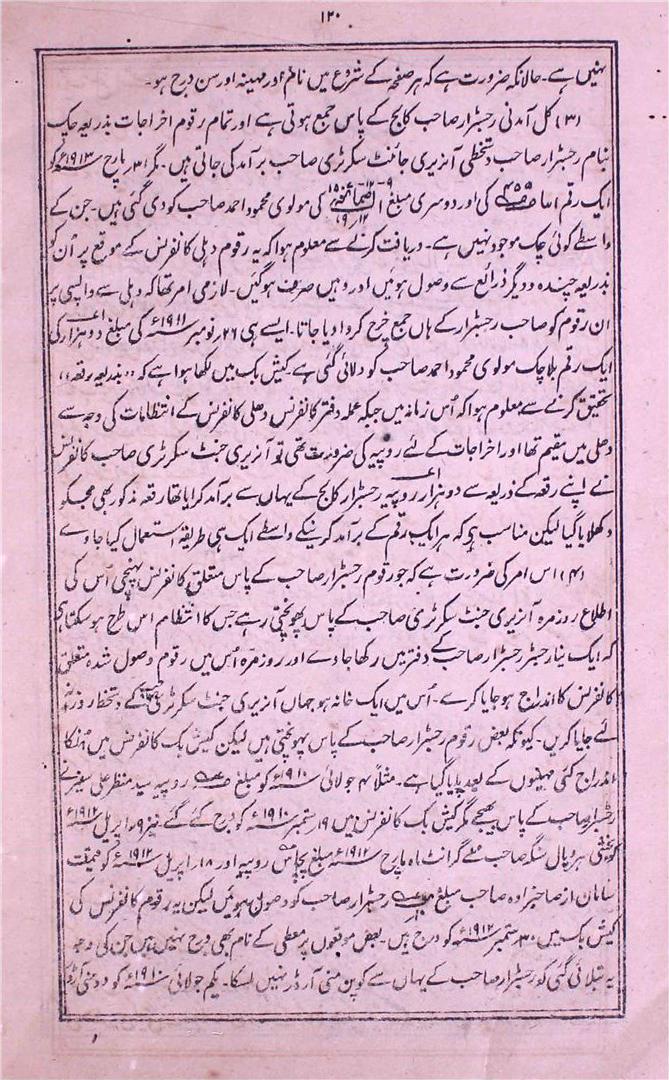 ۱۲۰
نہیں ہے۔ حالانکہ ضرورت ہے کہ ہر صفحہ کے شروع میں نام اور مہینہ اور سن درج ہو۔
(۳) کل آمدنی رجسٹرار صاحب کالج کے پاس جمع ہوتی ہے اور تمام رقوم اخراجات بذریعہ چک
بنام رجسٹرار صاحب دستخطی آنریری جائنٹ سکرٹری صاحب برآمد کی جاتی ہیں۔ مگر ۳۱ مارچ ۱۹۱۳ء کو
ایک رقم کی اور دوسری مبلغ کی مولوی محمود احمد صاحب کو دی گئی ہیں۔ جن کے
واسطے کوئی چک موجود نہیں ہے۔ دریافت کرنے سے معلوم ہوا کہ یہ رقوم دہلی کانفرنس کے موقع پر اُن کو
بذریعہ چندہ و دیگر ذرائع سے وصول ہوئیں اور وہیں صرف ہوگئیں۔ لازمی امر تھا کہ دہلی سے واپسی پر
ان رقوم کو صاحب رجسٹرار کے ہاں جمع خرچ کروا دیا جاتا۔ ایسے ہی ۲۶ نومبر ۱۹۱۱ء کی مبلغ دو ہزار کی
ایک رقم بلا چک مولوی محمود احمد صاحب کو دلائی گئی ہے۔ کیش بک میں لکھا ہوا ہے کہ ،،بذریعہ رقعہ،،
تحقیق کرنے سے معلوم ہوا کہ اُس زمانہ میں جبکہ عملہ دفتر کانفرنس دھلی کانفرنس کے انتظامات کی وجہ سے
دھلی میں مقیم تھا اور اخراجات کے لئے روپیہ کی ضرورت تھی تو آنریری جنٹ سکرٹری صاحب کانفرنس
نے اپنے رقعہ کے ذریعہ سے دو ہزار روپیہ رجسٹرار کالج کے یہاں سے برآمد کرایا تھا رقعہ مذکور بھی مجھکو
دکھلایا گیا لیکن مناسب ہے کہ ہر ایک رقم کے برآمد کرنیکے واسطے ایک ہی طریقہ استعمال کیا جاوے
(۴) اس امر کی ضرورت ہے کہ جو رقوم رجسٹرار صاحب کے پاس متعلق کانفرنس پہنچی اُس کی
اطلاع روزمرہ آنریری جنٹ سکرٹری صاحب کے پاس پھونچتی رہے جس کا انتظام اس طرح ہوسکتا ہے
کہ ایک نیا رجسٹر رجسٹرار صاحب کے دفتر میں رکھا جاوے اور روزمرہ اُس میں رقوم وصول شدہ متعلق
کانفرنس کا اندراج ہوجایا کرے۔ اُس میں ایک خانہ ہو جہاں آنریری جنٹ سکرٹری کے دستخط روزمرہ
لئے جایا کریں۔ کیونکہ بعض رقوم رجسٹرار صاحب کے پاس پہونچتی ہیں لیکن کیش بک کانفرنس میں اُنکا
اندراج کئی مہینوں کے بعد پایا گیا ہے۔ مثلاً ۴ جولائی ۱۹۱۰ء کو مبلغ روپیہ سید منظر علی سفیر نے
رجسٹرار صاحب کے پاس بھیجے مگر کیش بک کانفرنس میں ۱۹ ستمبر ۱۹۱۰ء کو درج کئے گئے۔ نیز ۹ اپریل ۱۹۱۲ء
کو سنگھ صاحب سے گرانٹ ماہ مارچ ۱۹۱۲ء مبلغ پچاس روپیہ اور ۱۸ اپریل ۱۹۱۲ء کو قیمت
سامان از صاحبزادہ صاحب مبلغ رجسٹرار صاحب کو وصول ہوئیں لیکن یہ رقوم کانفرنس کی
کیش بک میں ۳۰ ستمبر ۱۹۱۲ء کو درج ہیں۔ بعض موقعوں پر معطی کے نام بھی درج نہیں ہیں جن کی وجہ
یہ بتلائی گئی کہ رجسٹرار صاحب کے یہاں سے کوپن منی آرڈر نہیں مل سکا۔ یکم جولائی ۱۹۱۰ء کو دو منی آرڈر